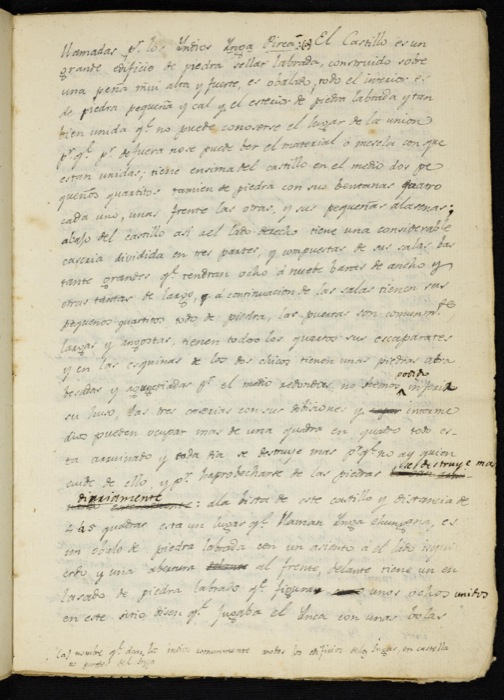 llamadas pr. los Yndios Ynga Pirca: (a) El Castillo es un
grande edificio de piedra sellar labrada, construido sobre
una peña mui alta y fuerte, es obalado, todo el interior es
de piedra pequeña y cal y el esterior de piedra labrada y tan
bien unida qe. no puede conoserse el lugar de la union
pr. qe. pr. de fuera no se puede ber el material ó mescla con que
estan unidas; tiene ensima del castillo en el medio dos pe
queños quartitos tamien de piedra con sus bentanas quatro
cada uno, unas frente las otras, y sus pequeñas alasenas;
abajo del castillo asi a el lado derecho tiene una considerable
caseria dividida en tres partes, y compuestas de sus salas bas
tante grandes qe. tendran ocho ó nuebe baras de ancho y
otras tantas de largo, y á continuacion de las salas tienen sus
pequeños quartitos todo de piedra, las puertas son comunmte
largas y angostas, tienen todos los quartos sus escaparates
y en las esquinas de los dos chicos tienen unas piedras atra
besadas y agugeriadas pr. el medio redondas, no hemos podido inferir
su huso, las tres caserias con sus dibiciones y enorme
dios pueden ocupar mas de una quadra en quadro todo es-
ta arruinado y cada dia se destruye mas pr. qe. no ay quien
cuide de ello, y pr. haprobecharse de las piedras se destruye mas
diariamente: a la bista de este castillo y distancia de
4 á 5 quadras esta un lugar qe. llaman Ynga chungana, es
un obalo de piedra labrada con un asiento á el lado isqui
erdo y una abertura al frente, delante tiene un en
lasado de piedra labrado qe. figuran unos ochos unidos
en este sitio disen qe. jugaba el Ynca con unas bolas
(a) nombre qe. dan los indios comunmente a todos los edificios de los Yngas, en castella
no pared del Ynga